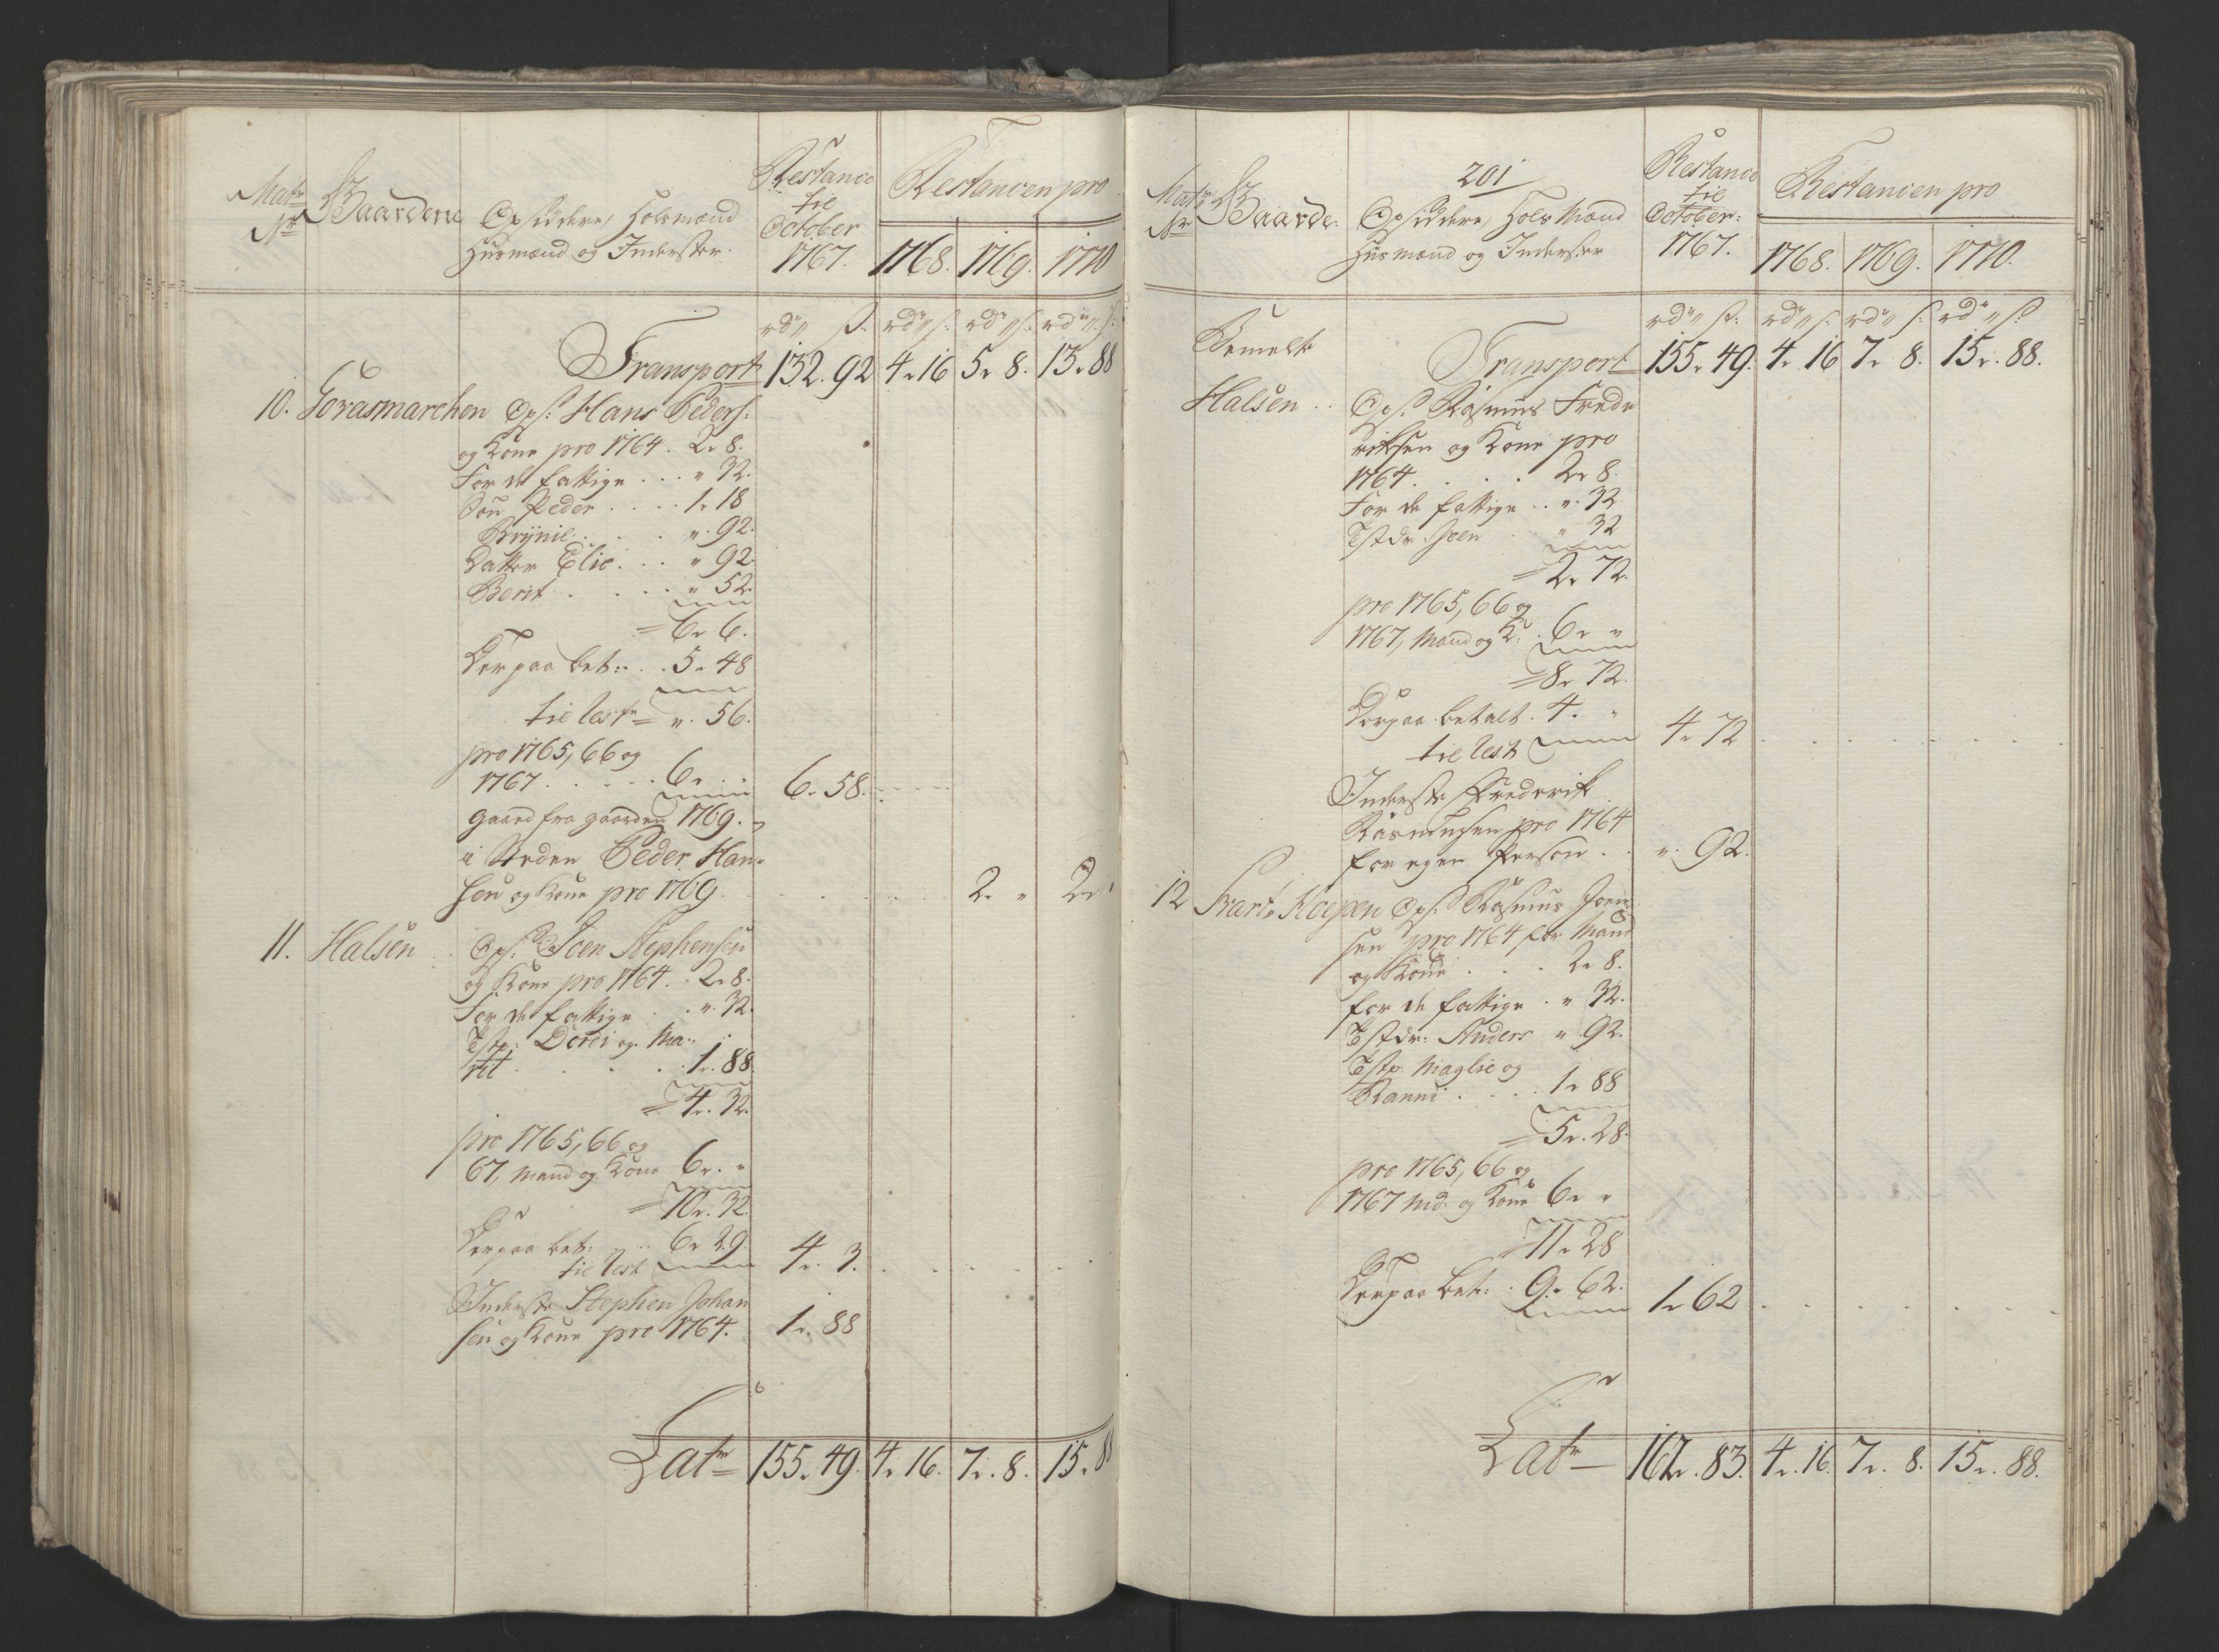 Matr: Nr
Gaardene
Opsiddere, Holsmænd
Husmænd og Inderster.
Restance
til
October
1767.
Restancen pro
1768. 1769. 1770
rdr ß. rdr ß. rdr ß. rdr ß.
Transport 132. 92 4. 16 5. 8. 13. 88
10. Gorasmarchen Ops: Hans Peders:
og Kone pro 1764. 2. 8.
For de fattige . . . " 32.
Søn Peder . . . . 1. 18
Brynil . . . . ". 92.
Datter Elie . . . " 92.
Berit . . . . . " 52.
= 6. 6.
Derpaa bet: . . 5. 48
til Rest = ". 56.
pro 1765, 66 og
1767 . . . . . 6. . . 6. 58.
gaaed fra gaarden 1769.
i Steden Peder Han-
sen og Kone pro 1769. . . . . 2. " 2.
11. Halsen . . Ops: Joen Stephensen
og Kone pro 1764. . 2. 8.
For de fattige . . ". 32.
Tstp: Dordi og Ma-
rit . . . . . 1. 88.
= 4. 32.
pro 1765, 66 og
67, Mand og Kone 6. "
= 10. 32.
Derpaa bet: . . 6. 29.
til Rest 4. 3.
Inderste Stephen Johan
sen og Kone pro 1764. 1. 88
Latr 155. 49. 4. 16. 7. 8. 15. 88
201
Matr: Nr
Gaarde:
Opsiddere, Hols Mænd
Husmænd og Inderster
Restance
til
October:
1767.
Restancen pro
1768. 1769. 1770.
rdr ß: rdr ß: rdr ß: rdr ß
Bemelte
Transport 155. 49. 4. 16 7. 8. 15. 88.
Halsen . . Ops: Rasmus Frede
riksen og Kone pro
1764. . . . . 2. 8.
For de fattige . . ". 32.
Tstdr: Joen . . " 32
= 2. 72.
pro 1765, 66 og
1767, Mand og K: . 6. "
= 8. 72.
Derpaa betalt . 4. "
til Rest 4. 72
Inderste Frederik
Rasmusen pro 1764
for egen Person . . ". 92.
12 Svart Hoepen Ops: Rasmus Joen-
sen pro 1764 for Mand
og Kone . . . 2. 8.
for de fattige . " 32.
Tstdr: Anders " 92.
Tstp: Maglie og
Ranni . . . . 1. 88
= 5. 28.
pro 1765, 66 og
1767 Md: og Kone 6. "
= 11. 28
Derpaa bet: . 9. 62. 1. 62
Latr 162. 83. 4. 16. 7. 8. 15. 88.